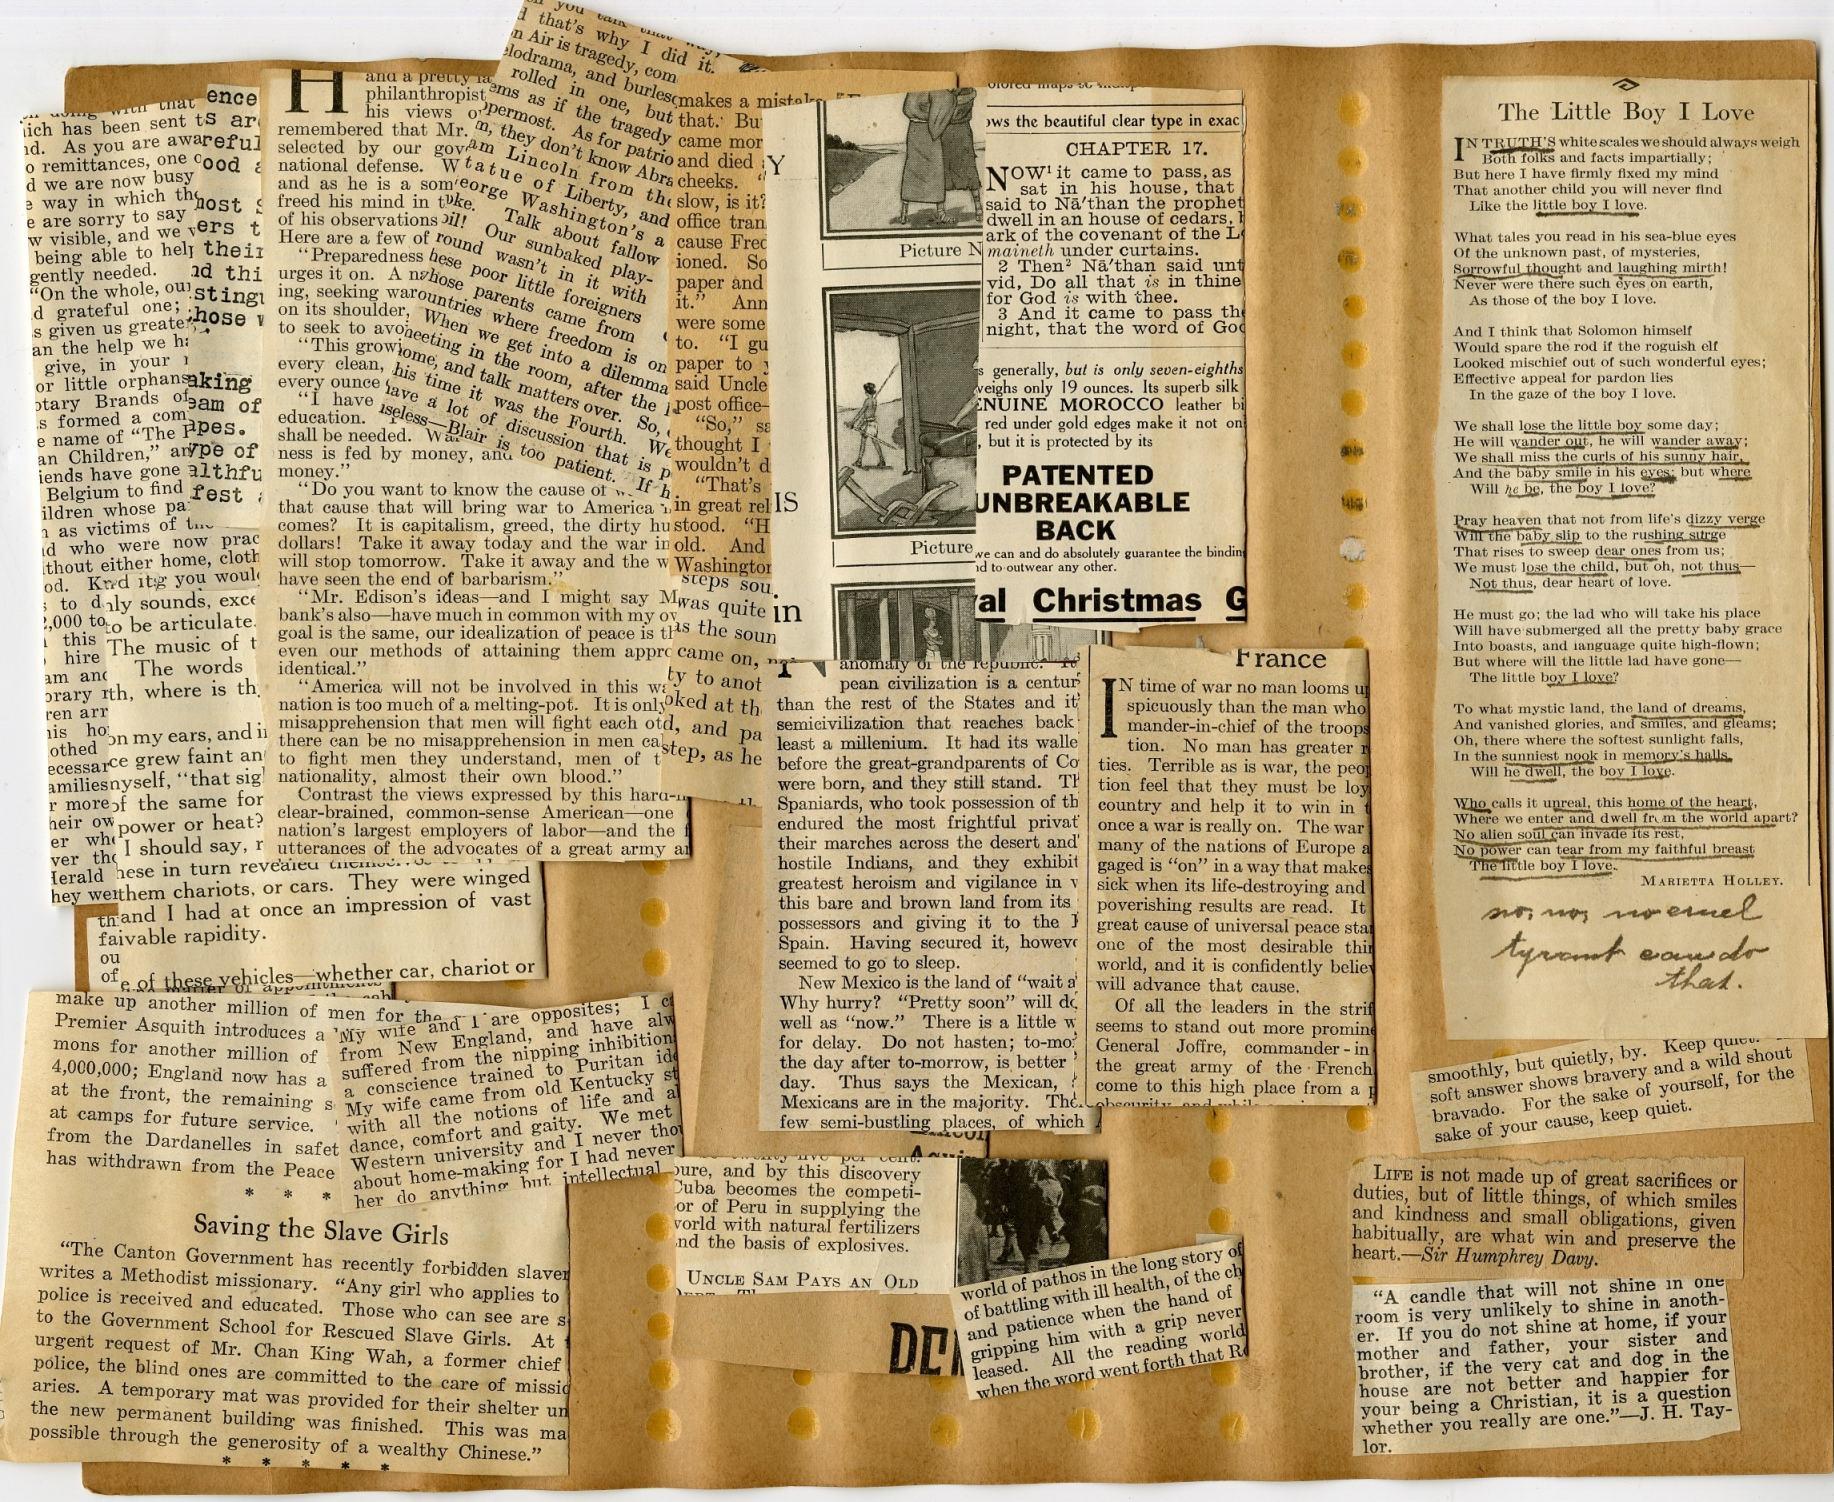 ich has been sent t
d. As you are aw
o remittances, one c
d we are now busy
e way in which th
e are sorry to say
w visible, and we v
being able to help
gently needed.
"On the whole, ou
d grateful one;
s given us greate
an the help we h
give, in your
or little orphans
otary Brands of
s formed a com
e name of "The P
an Children," an
iends have gone
Belgium to find
ildren whose pa
n as victims of
d who were now prac
thout either home, cloth
to d
2,000 to
this
hire
am and
orary
ren arr
his ho
othed
ecessar
amilies
r more
heir ow
er wh
ver the
Herald
hey wer
ence
ts ar
areful
ood a
most s
ers t
their
nd thi
sting
those w
aking
eam of
apes.
ype of
althfu
fest a
ly sounds, exce
to be articulate.
The music of t
The words
th, where is th
on my ears, and i
ce grew faint an
myself, "that sig
of the same for
power or heat?
I should say, r
hese in turn revealed
them chariots, or cars. They were winged
and I had at once an impression of vast
faivable rapidity.
ou
of
e of these vehicles—whether car, chariot or
H
and a pretty la
philanthropist
his views o
remembered that Mr.
selected by our gov
national defense. W
and as he is a som
freed his mind in t
of his observations
Here are a few of
"Preparedness
urges it on. A n
ing, seeking war
on its shoulder,
to seek to avo
"This grow
every clean,
every ounce
"I have
education.
shall be needed. Wa
ness is fed by money, and
money."
"Do you want to know the cause of
that cause that will bring war to America
comes? It is capitalism, greed, the dirty hu
dollars! Take it away today and the war in
will stop tomorrow. Take it away and the w
have seen the end of barbarism."
"Mr. Edison's ideas—and I might say M
bank's also—have much in common with my ov
goal is the same, our idealization of peace is th
even our methods of attaining them appro
identical."
"America will not be involved in this wa
nation is too much of a melting-pot. It is only
misapprehension that men will fight each ot
there can be no misapprehension in men ca
to fight men they understand, men of t
nationality, almost their own blood."
Contrast the views expressed by this hard-
clear-brained, common-sense American—one
nation's largest employers of labor—and the
utterances of the advocates of a great army a
d that's why I did it.
n Air is tragedy, com
elodrama, and burlesq
rolled in one, but
ems as if the tragedy
permost. As for patrio
m, they don't know Abra
am Lincoln from the
tatue of Liberty, and
eorge Washington's a
ke. Talk about fallow
oil! Our sunbaked play-
round wasn't in it with
hese poor little foreigners
hose parents came from
ountries where freedom is on
When we get into a dilemma
meeting in the room, after the
ome, and talk matters over. So,
his time it was the Fourth. We
have a lot of discussion that is p
iseless—Blair is too patient. If h
makes a mistake
that.' Bu
came mor
and died
cheeks.
slow, is it?
office tran
cause Fred
ioned. So
paper and
it." Ann
were some
to. "I gu
paper to y
said Uncle
post office—
"So," sa
thought I
wouldn't d
"That's
in great rel
stood. "H
old. And
Washington
steps sou
was quite
as the soun
came on,
ty to anot
oked at th
d, and pa
step, as he
Y
IS
in
Picture N
Picture
ws the beautiful clear type in exac
CHAPTER 17.
NOW¹ it came to pass, as
sat in his house, that
said to Nā'than the prophet
dwell in an house of cedars,
ark of the covenant of the L
maineth under curtains.
2 Then² Nā'than said unt
vid, Do all that is in thine
for God is with thee.
3 And it came to pass the
night, that the word of God
s generally, but is only seven-eighths
weighs only 19 ounces. Its superb silk
ENUINE MOROCCO leather bi
red under gold edges make it not on
, but it is protected by its
PATENTED
UNBREAKABLE
BACK
we can and do absolutely guarantee the bindin
d to outwear any other.
al Christmas G
anomaly of the republic.
pean civilization is a centur
than the rest of the States and it
semicivilization that reaches back
least a millenium. It had its walle
before the great-grandparents of Co
were born, and they still stand. Th
Spaniards, who took possession of th
endured the most frightful privat
their marches across the desert and
hostile Indians, and they exhibit
greatest heroism and vigilance in v
this bare and brown land from its
possessors and giving it to the
Spain. Having secured it, howeve
seemed to go to sleep.
New Mexico is the land of "wait a
Why hurry? "Pretty soon" will do
well as "now." There is a little w
for delay. Do not hasten; to-mo
the day after to-morrow, is better
day. Thus says the Mexican,
Mexicans are in the majority. The
few semi-bustling places, of which
France
IN time of war no man looms up
spicuously than the man who
mander-in-chief of the troops
tion. No man has greater r
ties. Terrible as is war, the peop
tion feel that they must be loy
country and help it to win in t
once a war is really on. The war
many of the nations of Europe a
gaged is "on" in a way that makes
sick when its life-destroying and
poverishing results are read. It
great cause of universal peace sta
one of the most desirable thin
world, and it is confidently believ
will advance that cause.
Of all the leaders in the strif
seems to stand out more promine
General Joffre, commander-in
the great army of the French
come to this high place from a p
make up another million of men for the
Premier Asquith introduces a
mons for another million of
4,000,000; England now has a
at the front, the remaining s
at camps for future service.
from the Dardanelles in safet
has withdrawn from the Peace
* * *
Saving the Slave Girls
"The Canton Government has recently forbidden slaver
writes a Methodist missionary. "Any girl who applies to
police is received and educated. Those who can see are s
to the Government School for Rescued Slave Girls. At
urgent request of Mr. Chan King Wah, a former chief
police, the blind ones are committed to the care of missio
aries. A temporary mat was provided for their shelter un
the new permanent building was finished. This was ma
possible through the generosity of a wealthy Chinese."
* * * * *
'My wife and I are opposites; I c
from New England, and have alw
suffered from the nipping inhibition
a conscience trained to Puritan ide
My wife came from old Kentucky st
with all the notions of life and a
dance, comfort and gaity. We met
Western university and I never thou
about home-making for I had never
her do anything but intellectual
pure, and by this discovery
Cuba becomes the competi-
or of Peru in supplying the
world with natural fertilizers
and the basis of explosives.
UNCLE SAM PAYS AN OLD
world of pathos in the long story of
of battling with ill health, of the ch
and patience when the hand of
gripping him with a grip never
leased. All the reading world
when the word went forth that R
The Little Boy I Love
IN TRUTH'S white scales we should always weigh
Both folks and facts impartially;
But here I have firmly fixed my mind
That another child you will never find
Like the little boy I love.
What tales you read in his sea-blue eyes
Of the unknown past, of mysteries,
Sorrowful thought and laughing mirth!
Never were there such eyes on earth,
As those of the boy I love.
And I think that Solomon himself
Would spare the rod if the roguish elf
Looked mischief out of such wonderful eyes;
Effective appeal for pardon lies
In the gaze of the boy I love.
We shall lose the little boy some day;
He will wander out, he will wander away;
We shall miss the curls of his sunny hair,
And the baby smile in his eyes; but where
Will he be, the boy I love?
Pray heaven that not from life's dizzy verge
Will the baby slip to the rushing surge
That rises to sweep dear ones from us;
We must lose the child, but oh, not thus—
Not thus, dear heart of love.
He must go; the lad who will take his place
Will have submerged all the pretty baby grace
Into boasts, and language quite high-flown;
But where will the little lad have gone—
The little boy I love?
To what mystic land, the land of dreams,
And vanished glories, and smiles, and gleams;
Oh, there where the softest sunlight falls,
In the sunniest nook in memory's halls,
Will he dwell, the boy I love.
Who calls it unreal, this home of the heart,
Where we enter and dwell from the world apart?
No alien soul can invade its rest,
No power can tear from my faithful breast
The little boy I love.
MARIETTA HOLLEY.
no, no, no cruel
tyrant can do
that.
smoothly, but quietly, by. Keep quiet.
soft answer shows bravery and a wild shout
bravado. For the sake of yourself, for the
sake of your cause, keep quiet.
LIFE is not made up of great sacrifices or
duties, but of little things, of which smiles
and kindness and small obligations, given
habitually, are what win and preserve the
heart.—Sir Humphrey Davy.
"A candle that will not shine in one
room is very unlikely to shine in anoth-
er. If you do not shine at home, if your
mother and father, your sister and
brother, if the very cat and dog in the
house are not better and happier for
your being a Christian, it is a question
whether you really are one."—J. H. Tay-
lor.